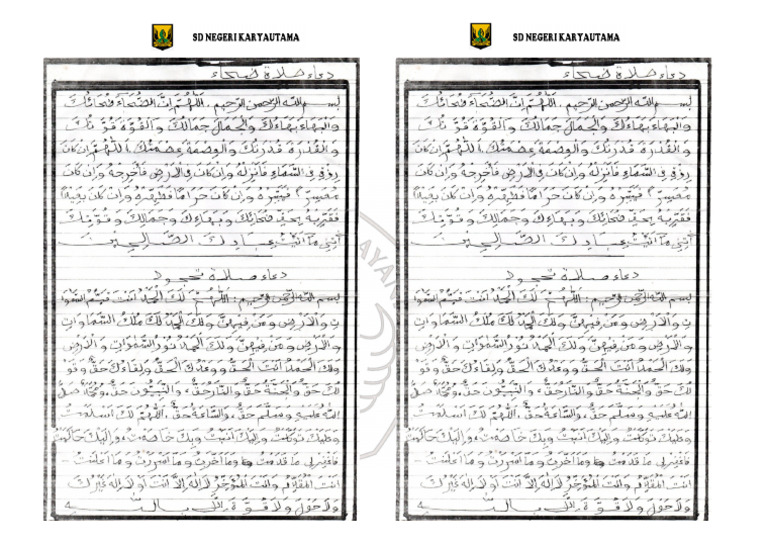 SD NEGERI KARYAUTAMA
دعاء صلاة ضحاء
بسم الله الرحمن الرحيم . اللهم ان الضحاء ضحائك
والبهاء بهاءك والجمال جمالك والقوة قوتك
والقدرة قدرتك والعصمة عصمتك اللهم ان كان
رزقي في السماء فأنزله وان كان في الارض فأخرجه وان كان
معسرا فيسره وان كان حراما فطهره وان كان بعيدا
فقربه بحق ضحائك وبهاءك وجمالك وقوتك
آتني ما آتيت عبادك الصالحين
دعاء صلاة تهجود
بسم الله الرحمن الرحيم : اللهم لك الحمد انت قيم السموا
ت والارض ومن فيهن ولك الحمد لك ملك السماوات
والارض ومن فيهن ولك الحمد نور السموات والارض
ولك الحمد انت الحق ووعدك الحق ولقاءك حق وقو
لك حق والجنة حق والنار حق والنبيون حق ومحمد صلى
الله عليه وسلم حق والساعة حق اللهم لك اسلمت
وعليك توكلت واليك انبت وبك خاصمت واليك حاكمت
فاغفرلي ما قدمت وما أخرت وما اسررت وما اعلنت
انت المقدم وانت المؤخر لا اله الا انت او لا اله غيرك
ولا حول ولا قوة الا بالله
SD NEGERI KARYAUTAMA
دعاء صلاة ضحاء
بسم الله الرحمن الرحيم . اللهم ان الضحاء ضحائك
والبهاء بهاءك والجمال جمالك والقوة قوتك
والقدرة قدرتك والعصمة عصمتك اللهم ان كان
رزقي في السماء فأنزله وان كان في الارض فأخرجه وان كان
معسرا فيسره وان كان حراما فطهره وان كان بعيدا
فقربه بحق ضحائك وبهاءك وجمالك وقوتك
آتني ما آتيت عبادك الصالحين
دعاء صلاة تهجود
بسم الله الرحمن الرحيم : اللهم لك الحمد انت قيم السموا
ت والارض ومن فيهن ولك الحمد لك ملك السماوات
والارض ومن فيهن ولك الحمد نور السموات والارض
ولك الحمد انت الحق ووعدك الحق ولقاءك حق وقو
لك حق والجنة حق والنار حق والنبيون حق ومحمد صلى
الله عليه وسلم حق والساعة حق اللهم لك اسلمت
وعليك توكلت واليك انبت وبك خاصمت واليك حاكمت
فاغفرلي ما قدمت وما أخرت وما اسررت وما اعلنت
انت المقدم وانت المؤخر لا اله الا انت او لا اله غيرك
ولا حول ولا قوة الا بالله